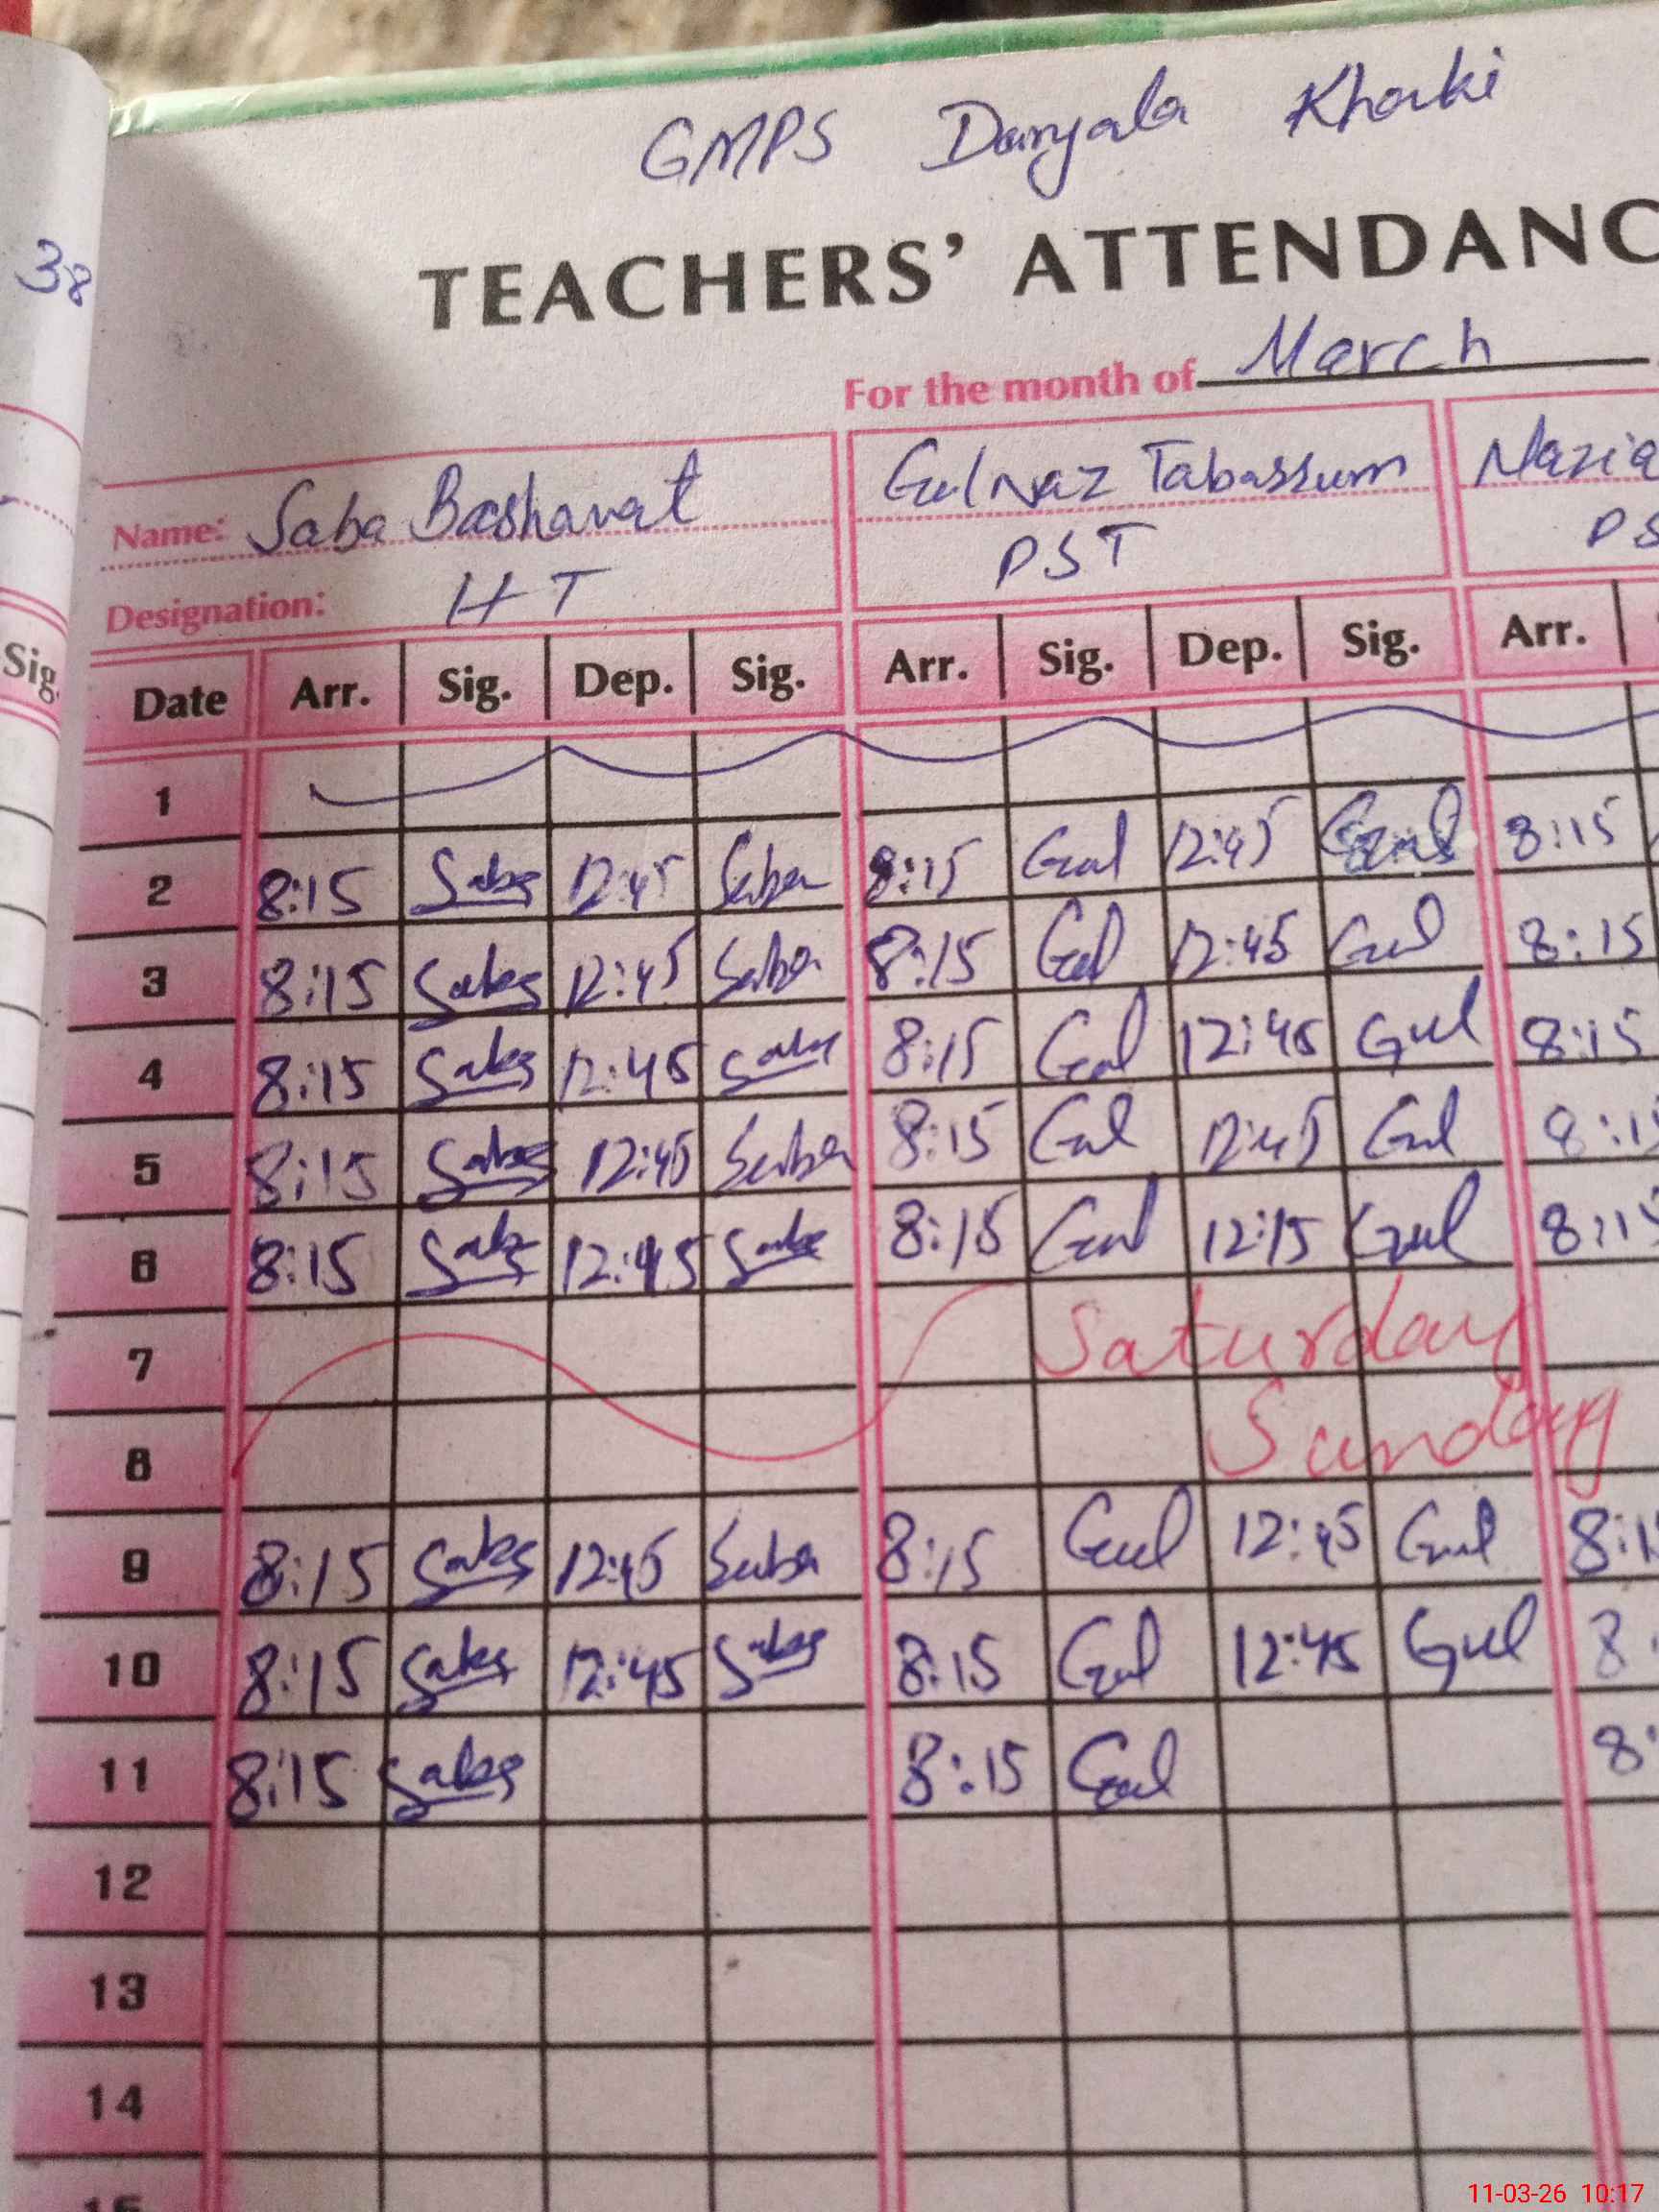 GMPS Daryala Khaki
38
TEACHERS' ATTENDANC
For the month of March
Name: Saba Basharat Gulnaz Tabassum Nazia
Designation: HT PST PS
Sig.
Date Arr. Sig. Dep. Sig. Arr. Sig. Dep. Sig. Arr.
1
2 8:15 Saba 12:45 Saba 8:15 Gul 12:45 Gul 8:15
3 8:15 Saba 12:45 Saba 8:15 Gul 12:45 Gul 8:15
4 8:15 Saba 12:45 Saba 8:15 Gul 12:45 Gul 8:15
5 8:15 Saba 12:45 Saba 8:15 Gul 12:45 Gul 8:15
6 8:15 Saba 12:45 Saba 8:15 Gul 12:15 Gul 8:15
7 Saturday
8 Sunday
9 8:15 Saba 12:45 Saba 8:15 Gul 12:45 Gul 8:1
10 8:15 Saba 12:45 Saba 8:15 Gul 12:45 Gul 8
11 8:15 Saba 8:15 Gul 8:
12
13
14
15
11-03-26 10:17